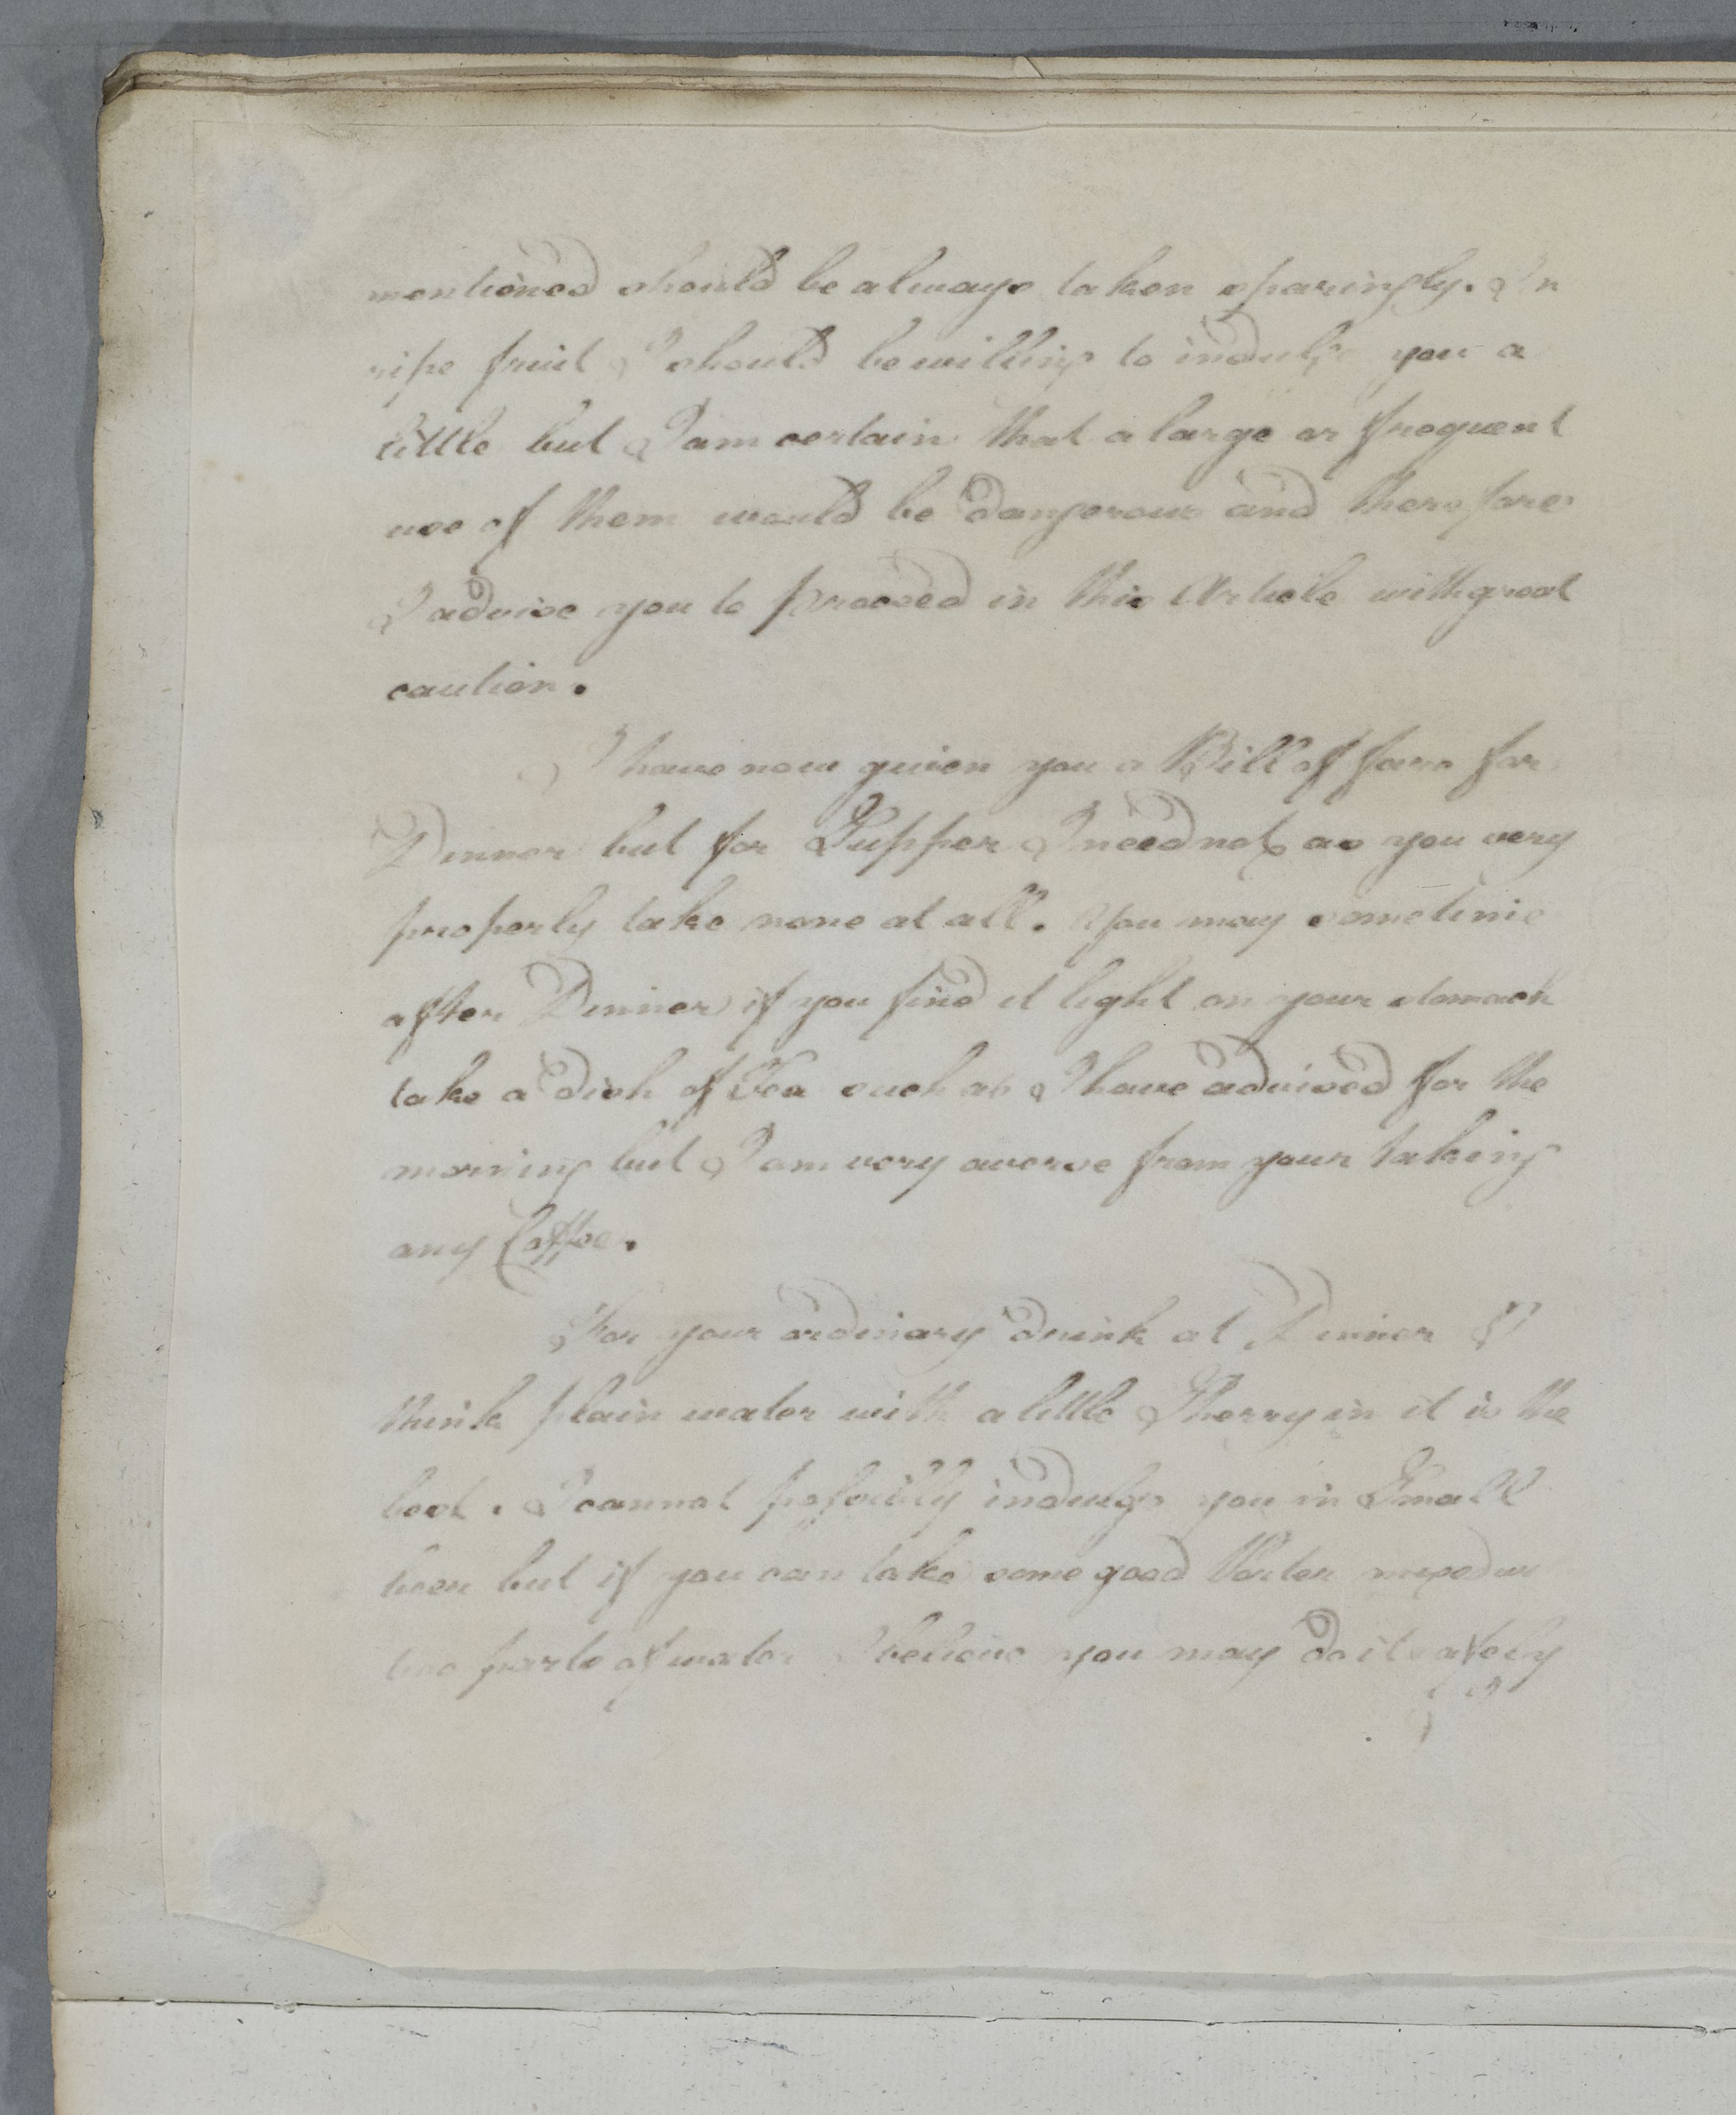 mentioned should be always taken sparingly. In
ripe fruit I should be willing to indulge you a
little but I am certain that a large or frequent
use of them would be dangerous and therefore
I advise you to proceed in this Article with great
caution.
I have now given you a Bill of fare for
Dinner but for Supper I need not as you very
properly take none at all. You may sometime
after Dinner if you find it light on your stomach
take a dish of Tea such as I have advised for the
morning but I am very averse from your taking
any Coffee.
For your ordinary drink at Dinner I
think plain water with a little Sherry in it is the
best. I cannot possibly indulge you in Small
beer but if you can take some good Porter
two parts of water I believe you may do it safely